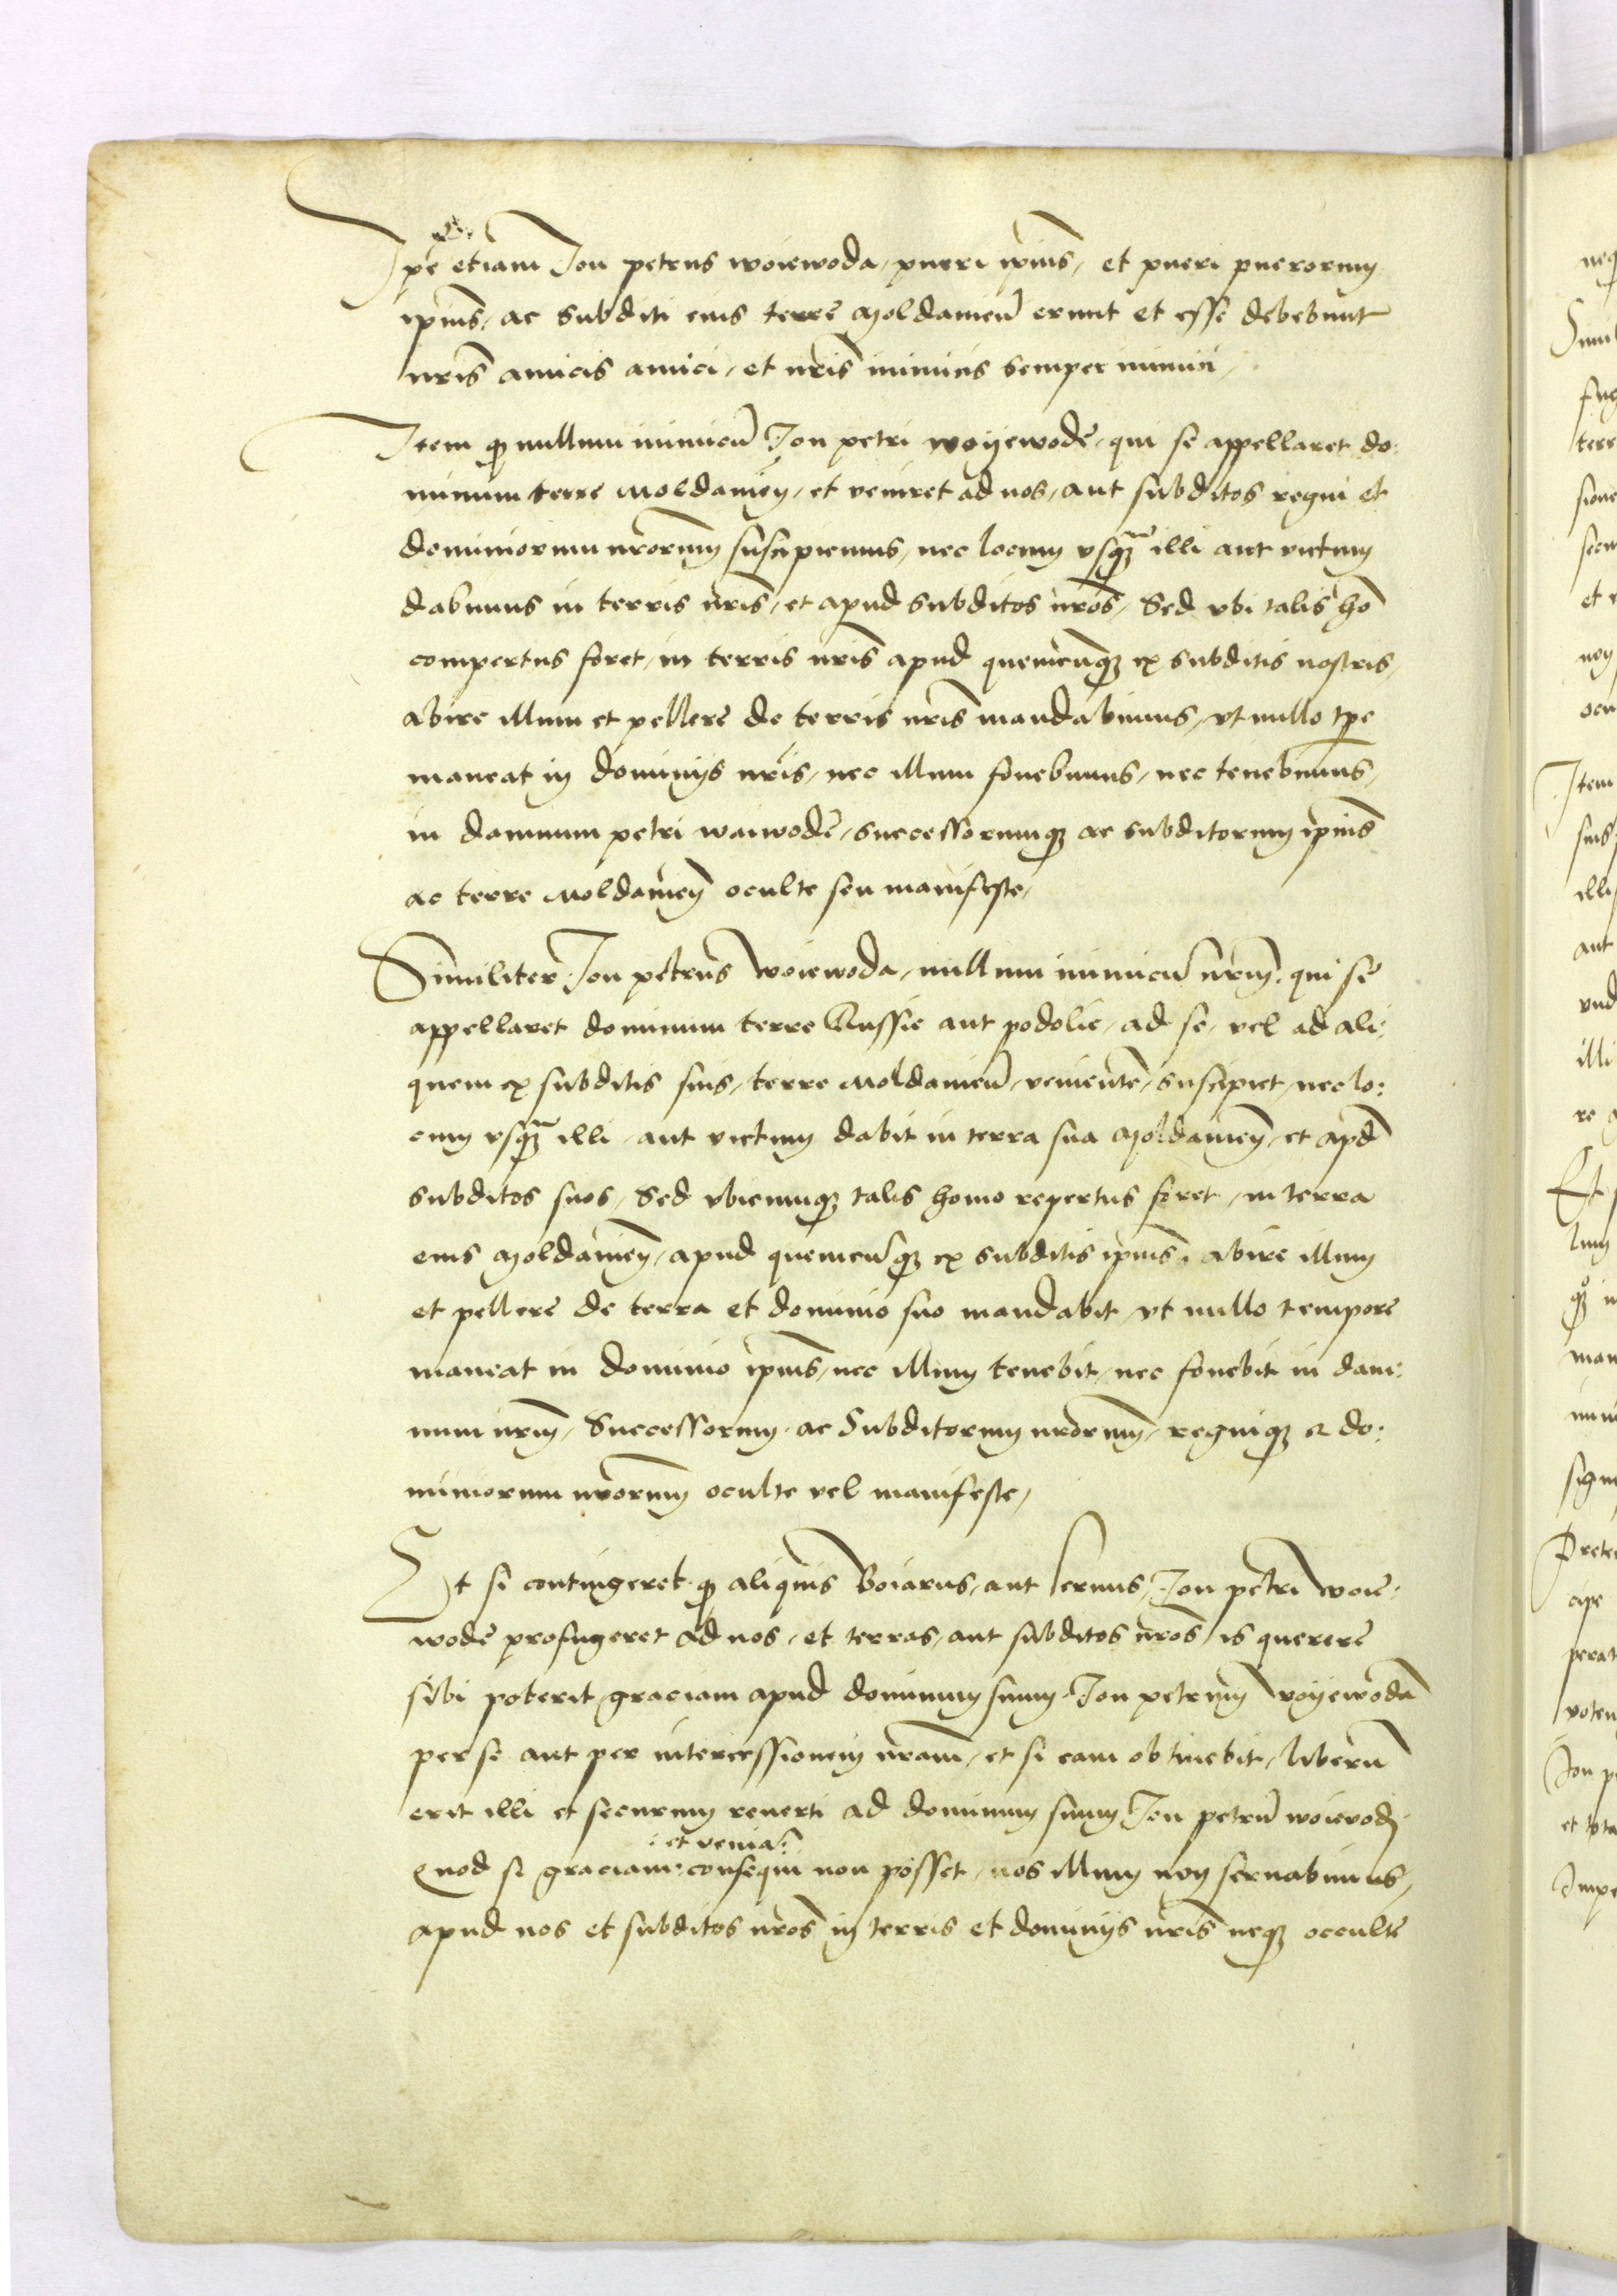 Ipe etiam Jon petrus woiewoda, pueri ipius, et pueri puerorum
ipius, ac subditi eius terre Moldauien erunt et esse debebunt
nris amicis amici, et nris inimicis semper inimici,
Item q nullum inimicu Jon petri woyewode, qui se appellaret do:
minum terre Moldauien, et veniret ad nos, aut subditos regni et
dominiorum nrorum suscipiemus, nec locum vsq illi aut victum
dabimus in terris nris, et apud subditos nros, Sed vbi talis ho
compertus foret, in terris nris apud quemcuq ex subditis nostris,
abire illum et pellere de terris nris mandabimus, vt nullo tpe
maneat in dominijs nris, nec illum fouebimus, nec tenebimus,
in damnum petri waiwode, successorumq ac subditorum ipius
ac terre Moldauien oculte seu manifeste,
Similiter Jon petrus woiewoda, nullum inimicu nrum, qui se
appellaret dominum terre Russie aut podolie, ad se, vel ad ali:
quem ex subditis suis, terre Moldauien, veniente, suscipiet, nec lo:
cum vsq illi, aut victum dabit in terra sua Moldauien, et apd
subditos suos, Sed vbicumq talis homo repertus foret, in terra
eius Moldauien, apud quemcuq ex subditis ipius, abire illum
et pellere de terra et dominio suo mandabit, vt nullo tempore
maneat in dominio ipius, nec illum tenebit, nec fouebit in dam:
num nrum, Successorum, ac Subditorum nrorum, regniq & do:
miniorum nrorum oculte vel manifeste,
Et si contingeret q aliquis Boiarus, aut seruus, Jon petri woie:
wode profugeret ad nos, et terras, aut subditos nros is querere
sibi poterit graciam apud dominum suum Jon petrum voyewoda
per se aut per intercessionem nram, et si eam obtinebit, liberu
erit illi et securum reuerti ad dominum suum Jon petru woiewod,
: et venia :
Quod si graciam: consequi non posset, nos illum non seruabimus,
apud nos et subditos nros in terris et dominijs nris neq occulte